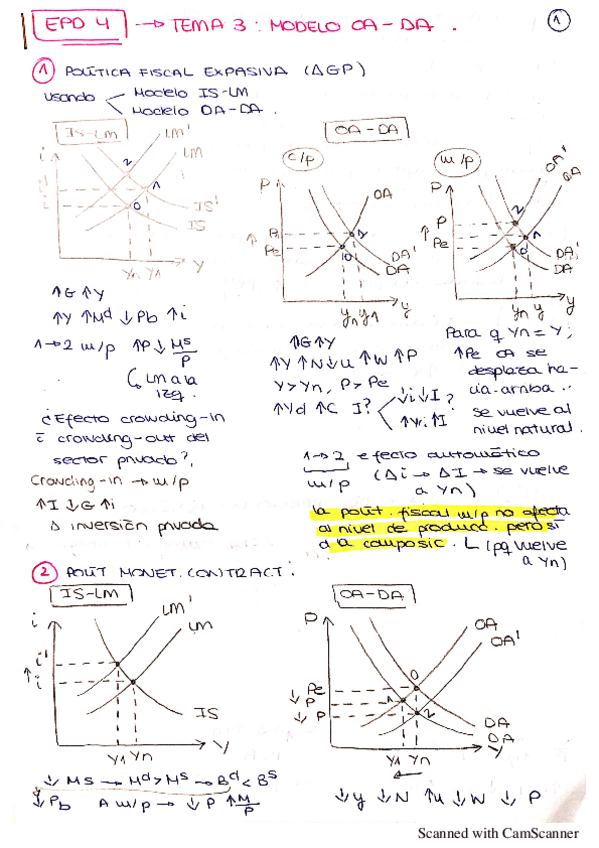 EPD 4 → TEMA 3: MODELO OA-DA.
1
1 POLÍTICA FISCAL EXPASIVA (ΔGP)
usando Modelo IS-LM
Modelo OA-DA.
IS-LM
i
i'
i
LM'
LM
2
1
0
IS'
IS
Yn Y1 Y
OA-DA
c/p
P
↑ P1
Pe
OA
1
0
DA'
DA
Yn Y1 Y
m/p
P
↑ P
Pe
OA'
OA
2
1
0
DA'
DA
Yn Y Y
↑G ↑Y
↑Y ↑Md ↓Pb ↑i
1→2 m/p ↑P ↓ Ms/P
LM a la
izq.
¿Efecto crowding-in
o crowding-out del
sector privado?,
Crowding-in → m/p
↑I ↓G ↑i
Δ inversión privada
↑G ↑Y
↑Y ↑N ↓u ↑W ↑P
Y>Yn, P>Pe
↑Yd ↑C I? ↓i ↓I ?
↑Y. ↑I
Para q Yn = Y;
↑Pe OA se
desplaza ha-
cia arriba..
se vuelve al
nivel natural.
1→2 efecto automático
m/p (Δi → ΔI → se vuelve
a Yn)
la polít. fiscal m/p no afecta
al nivel de producc. pero sí
a la composic. (pq vuelve
a Yn)
2 POLÍT MONET. CONTRACT:
IS-LM
i
i'
↑ i
LM'
LM
IS
Y1 Yn Y
OA-DA
P
↓ Pe
↓ P
↓ P
OA
OA'
0
1
2
DA
DA
Y1 Yn Y
←
↓ Ms → Md > Ms → Bd < Bs
↓Pb A m/p → ↓P ↑ M/P
↓Y ↓N ↑u ↓W ↓P
Scanned with CamScanner